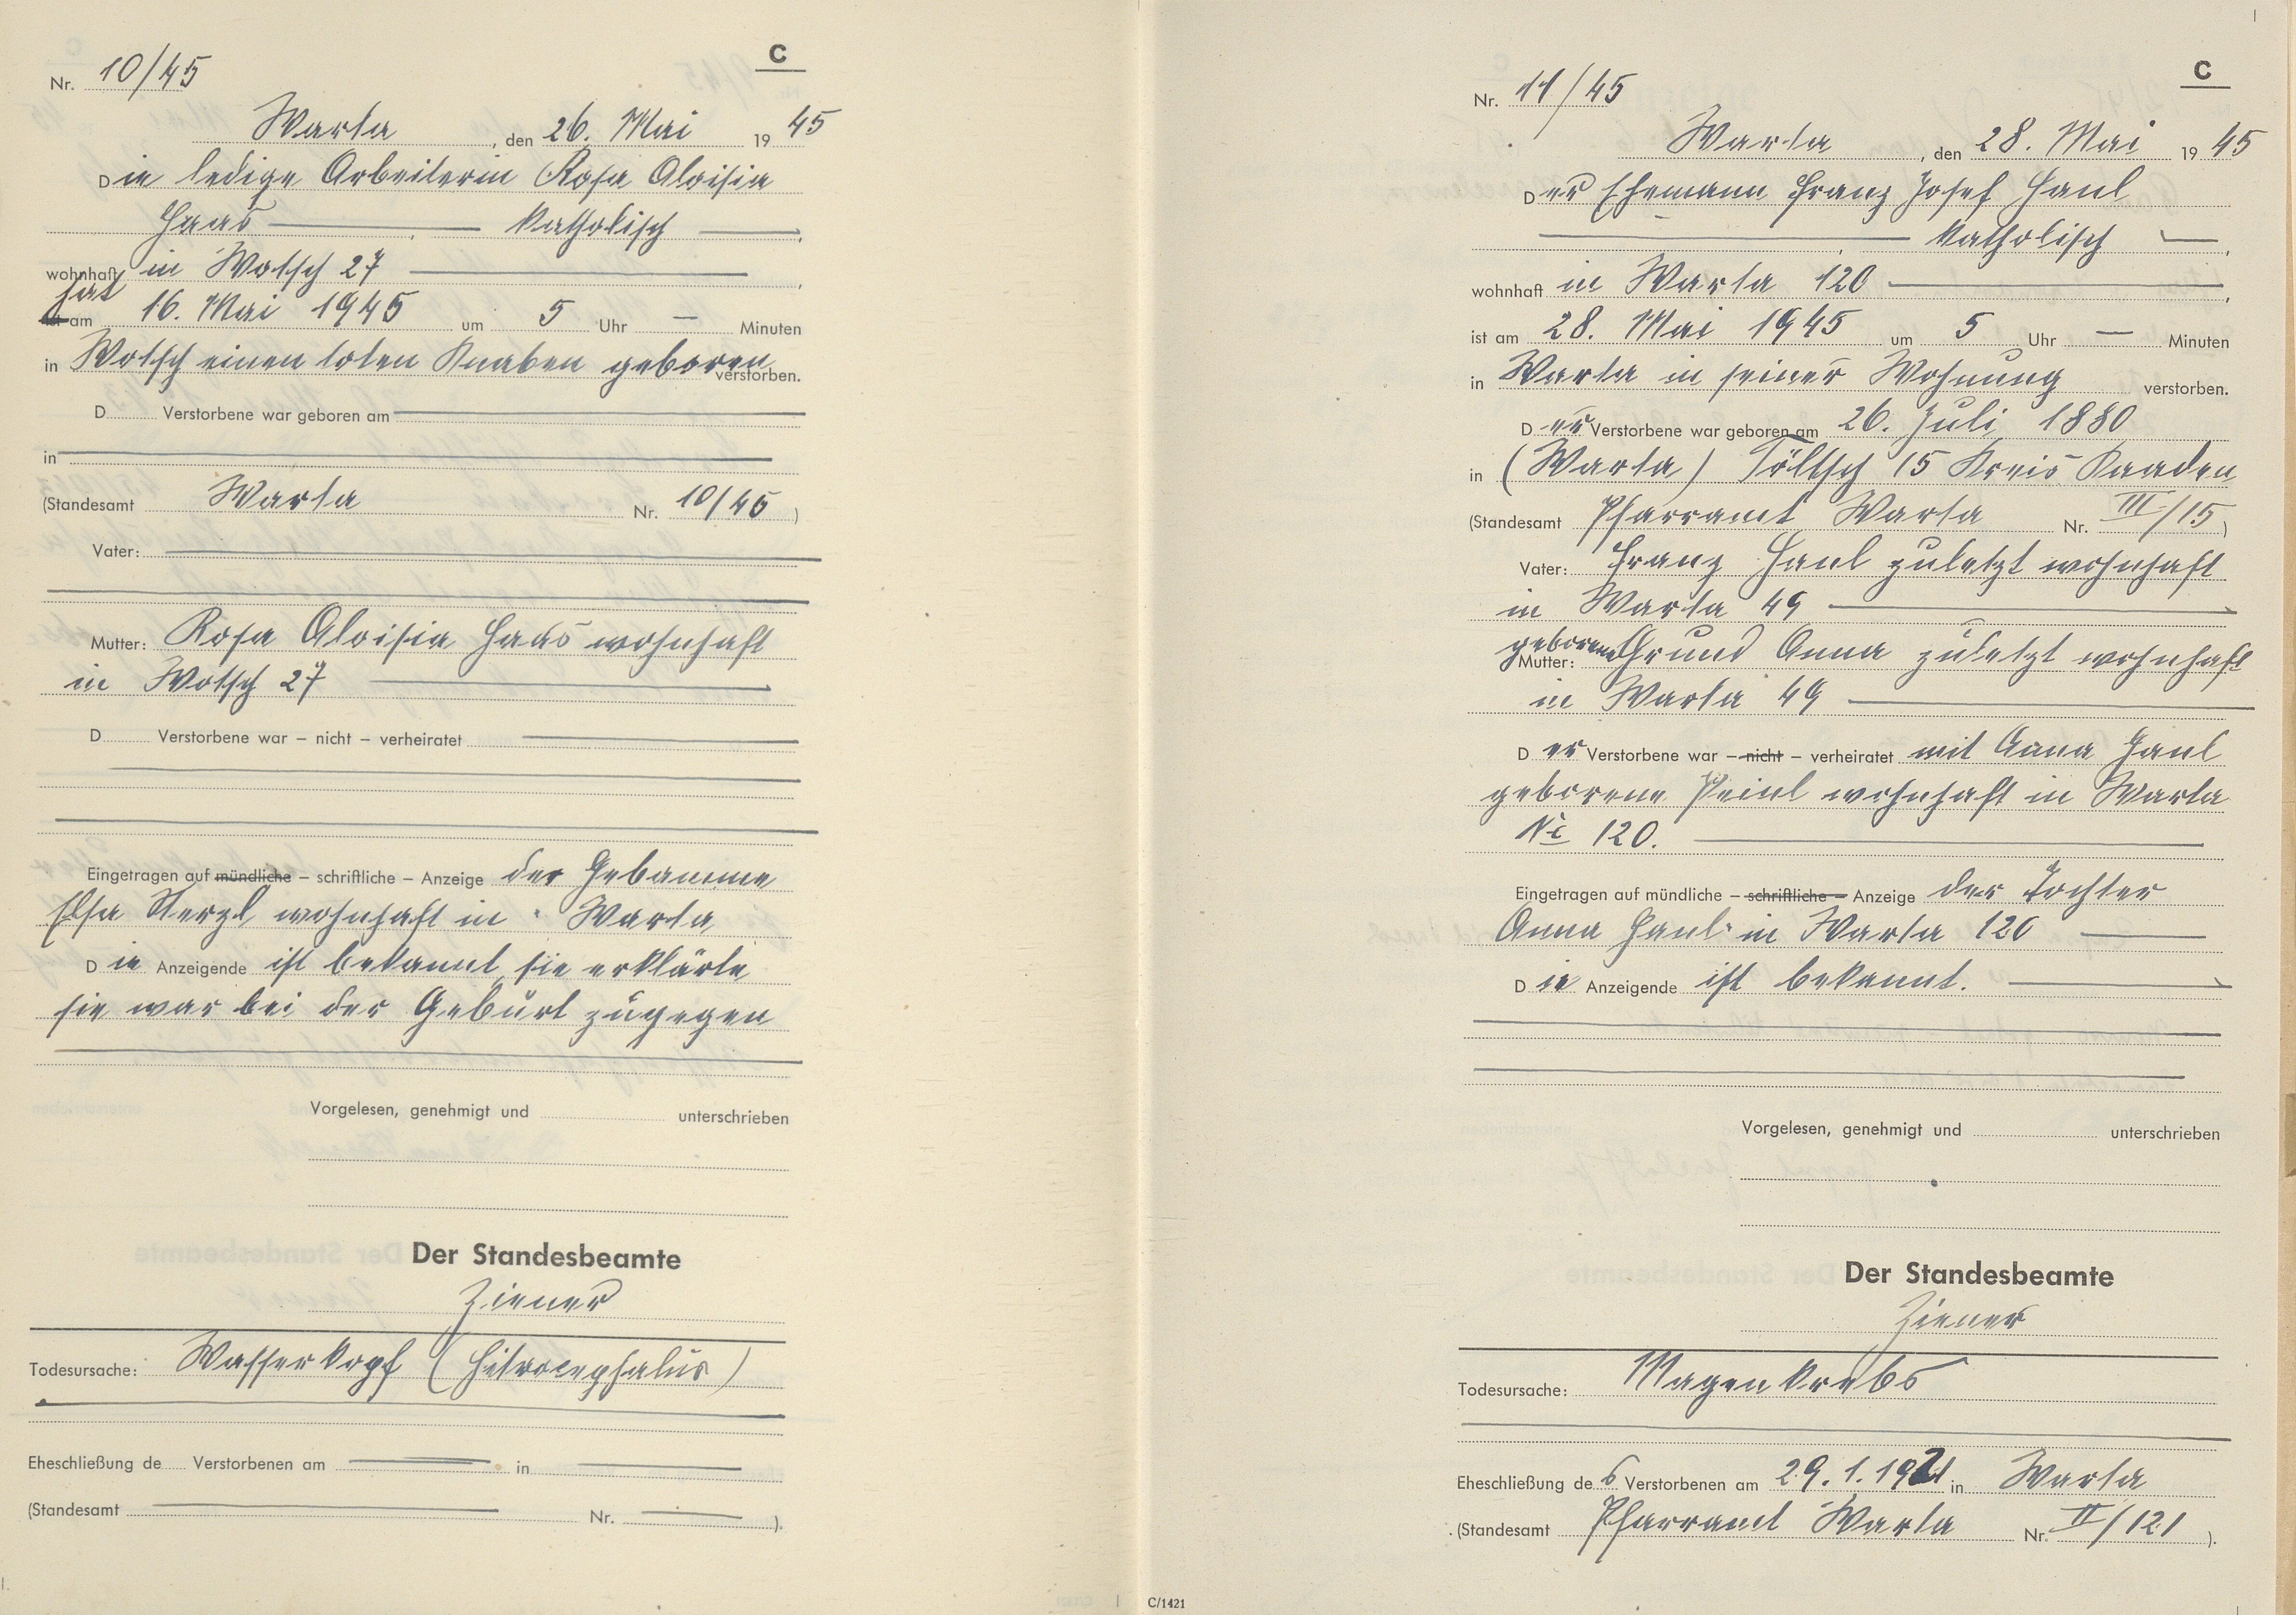 C
Nr. 10/45
Warta, den 26. Mai 1945
Die ledige Arbeiterin Rosa Aloisia
Haas — katholisch —,
wohnhaft in Wotsch 27
hat
ist am 16. Mai 1945 um 5 Uhr — Minuten
in Wotsch einen toten Knaben geboren verstorben.
D Verstorbene war geboren am
in
(Standesamt Warta Nr. 10/45)
Vater:
Mutter: Rosa Aloisia Haas wohnhaft
in Wotsch 27
D Verstorbene war – nicht – verheiratet
Eingetragen auf mündliche – schriftliche – Anzeige der Hebamme
Elsa wohnhaft in Warta
Die Anzeigende ist bekannt, sie erklärte
sie war bei der Geburt zugegen
Vorgelesen, genehmigt und unterschrieben
Der Standesbeamte
Ziener
Todesursache: Wasserkopf (Hitrocephalus)
Eheschließung de Verstorbenen am — in —
(Standesamt — Nr. —).
C
Nr. 11/45
Warta, den 28. Mai 1945
Der Ehemann Franz Josef Haul
— katholisch —,
wohnhaft in Warta 120
ist am 28. Mai 1945 um 5 Uhr — Minuten
in Warta in seiner Wohnung verstorben.
Der Verstorbene war geboren am 26. Juli 1880
in (Warta) Töltsch 15 Kreis Kaaden
(Standesamt Pfarramt Warta Nr. III/15)
Vater: Franz Haul zuletzt wohnhaft
in Warta 49
geborene
Mutter: Grund Anna zuletzt wohnhaft
in Warta 49
Der Verstorbene war – nicht – verheiratet mit Anna Haul
geborene Peinl wohnhaft in Warta
No 120.
Eingetragen auf mündliche – schriftliche – Anzeige der Tochter
Anna Haul in Warta 120
Die Anzeigende ist bekannt.
Vorgelesen, genehmigt und unterschrieben
Der Standesbeamte
Ziener
Todesursache: Magenkrebs
Eheschließung des Verstorbenen am 29.1.1921 in Warta
(Standesamt Pfarramt Warta Nr. II/121).
C/1421